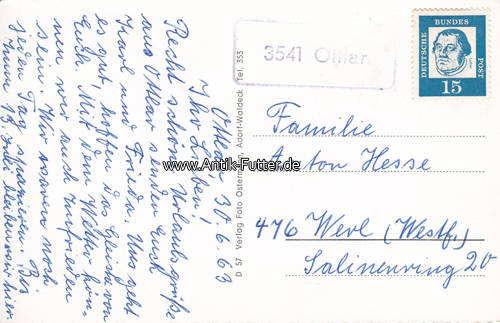 Ottlar, 30.6.63
Ihr Lieben!
Recht schöne Urlaubsgrüße
aus Ottlar senden Euch
Karl und Frieda. Uns geht
es gut, hoffen das Gleiche von
Euch. Mit dem Wetter kön-
nen wir auch zufrieden
sein. Wir waren noch
jeden Tag spazieren. Bis
zum 13. Juli bleiben wir hier
D 57 Verlag Foto Adorf-Waldeck Tel. 353
3541 Ottlar
DEUTSCHE BUNDES POST
15
Familie
Anton Hesse
476 Werl (Westf.)
Salinenring 20
www.Antik-Futter.de